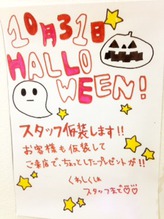 10月31日
HALLO
WEEN!
スタッフ仮装します!!
お客様も仮装して
ご来店で、ちょっとしたプレゼントが!!
くわしくは
スタッフまで♡♡